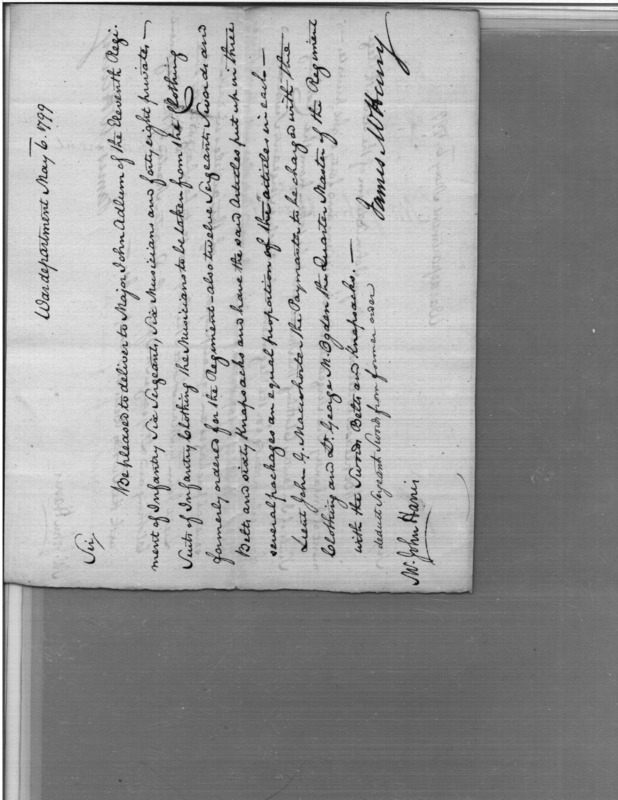 War department May 6. 1799
Sir,
Be pleased to deliver to Major John Adlum of the Eleventh Regi-
ment of Infantry Six Sergeants, Six Musicians and forty eight privates, —
Suits of Infantry Clothing the Musicians to be taken from the Clothing
formerly ordered for the Regiment - also twelve Sergeants Swords and
Belts and sixty Knapsacks and have the said Articles put up in three
several packages an equal proportion of the articles in each —
Lieut John G. Macwhorter the Paymaster to be charged with the
Clothing and Lt. George M. Ogden the Quarter Master of the Regiment
with the Swords, Belts and Knapsacks. —
deduct Sergeant Swords from former order
James McHenry
Mr. John Harris